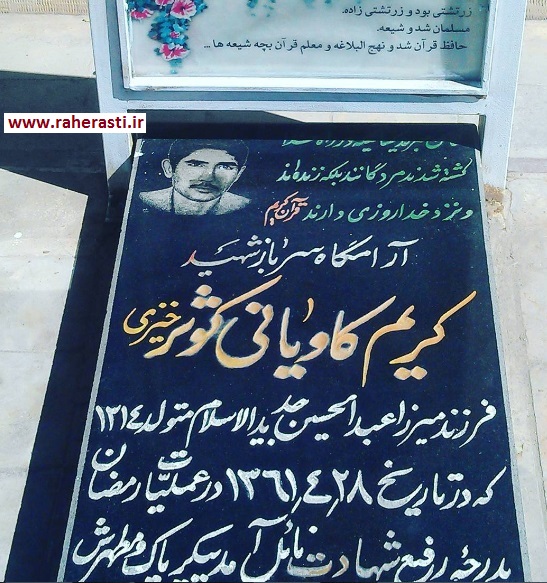 زرتشتی بود و زرتشتی زاده.
مسلمان شد و شیعه.
حافظ قرآن شد و نهج البلاغه و معلم قرآن بچه شیعه ها ...
www.raherasti.ir
کشته شدند مردگانند بلکه زنده اند
و نزد خدا روزی دارند قرآن کریم
آرامگاه سرباز شهید
کریم کاویانی کوثر خیزی
فرزند میرزا عبدالحسین جدیدالاسلام متولد ۱۳۱۴
که در تاریخ ۱۳۶۱,۴,۲۸ در عملیات رمضان
بدرجه رفیع شهادت نائل آمد پیکر پاک و مطهرش